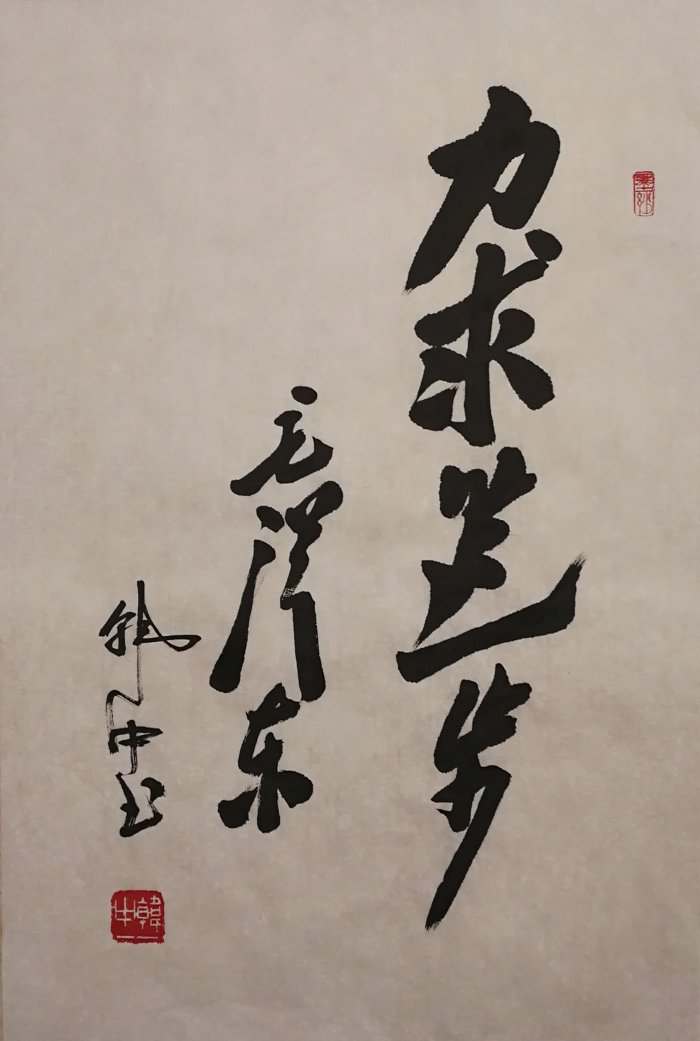 力求进步
毛泽东
韩中书
韩中